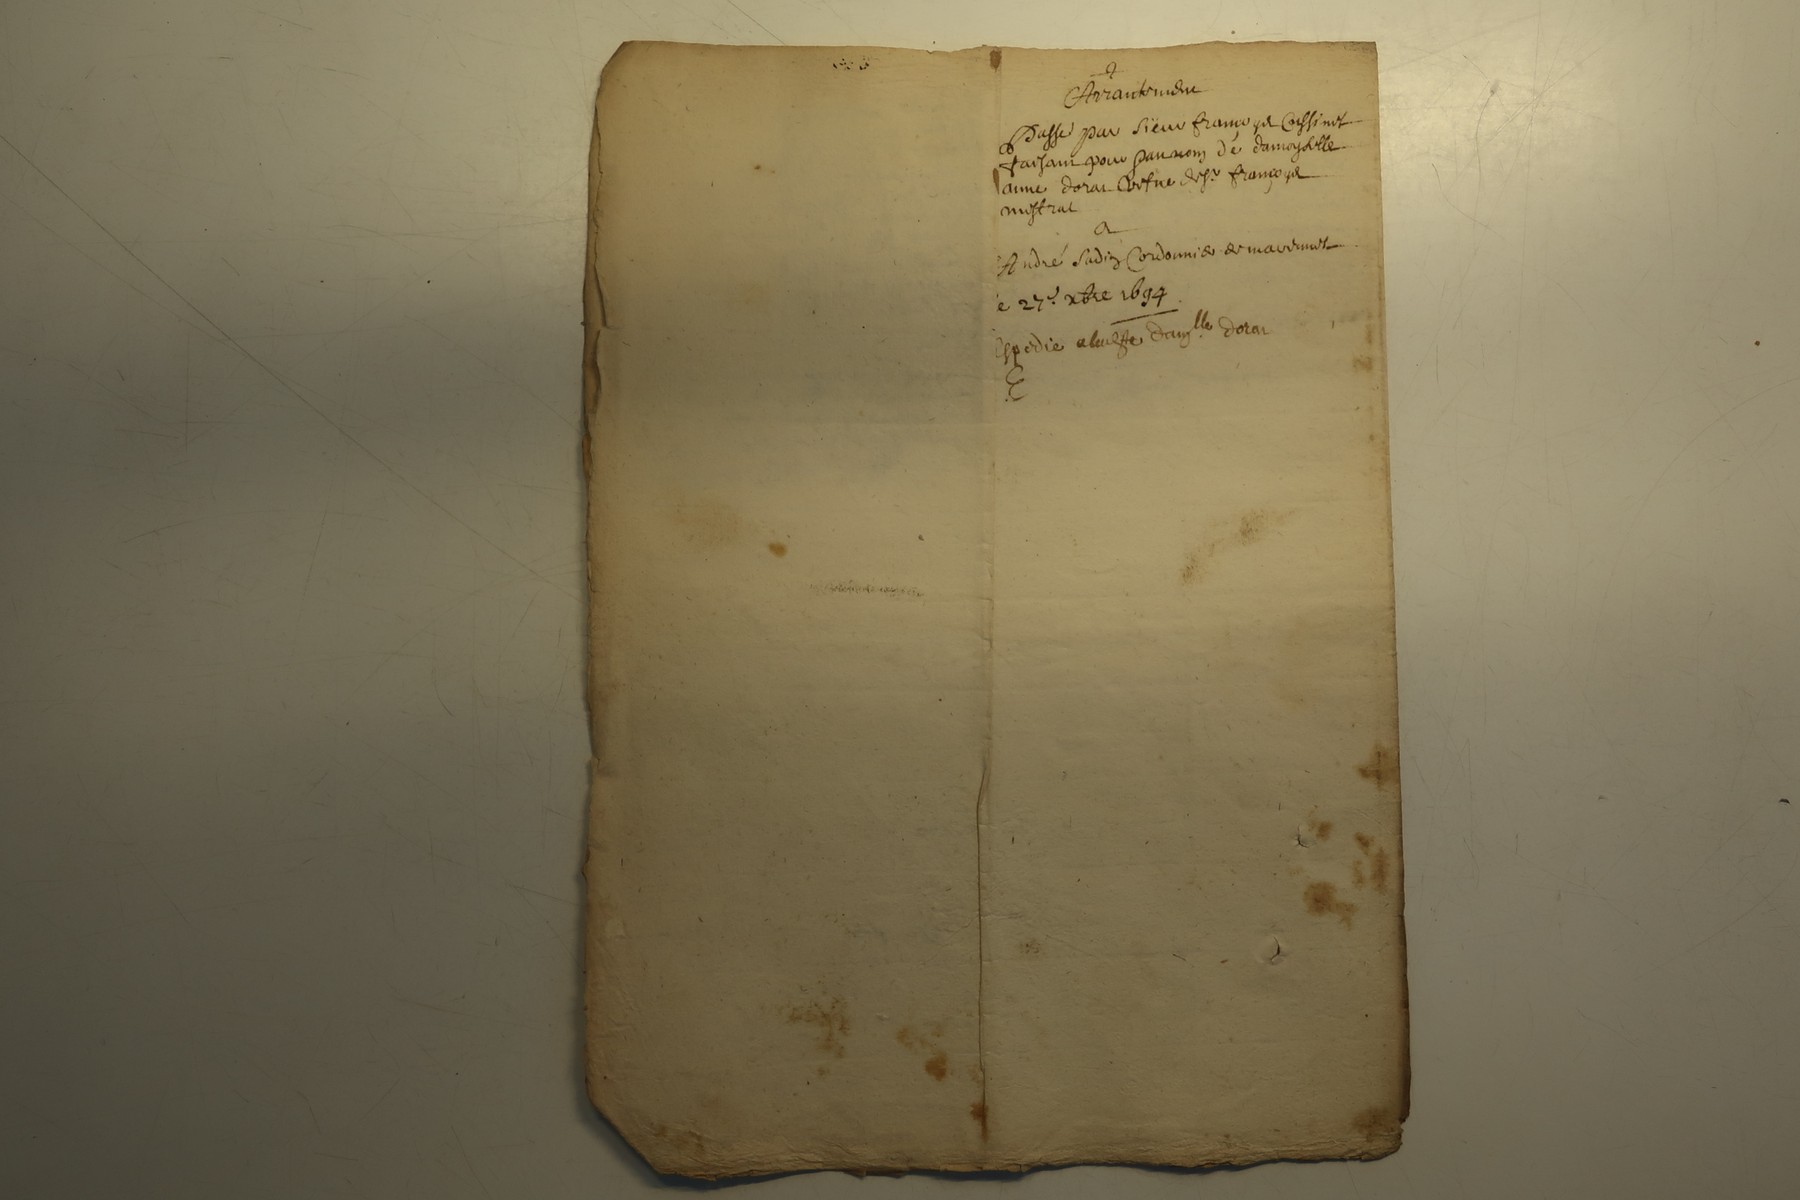 Arrantement
Passé par sieur françois Cossinet
faisant pour &
au nom de damoyselle
anne dorat vefve de sr françois
mistral
a
André Sadin Cordonnier de
le 27e xbre 1694
Expedie a lad damlle dorat